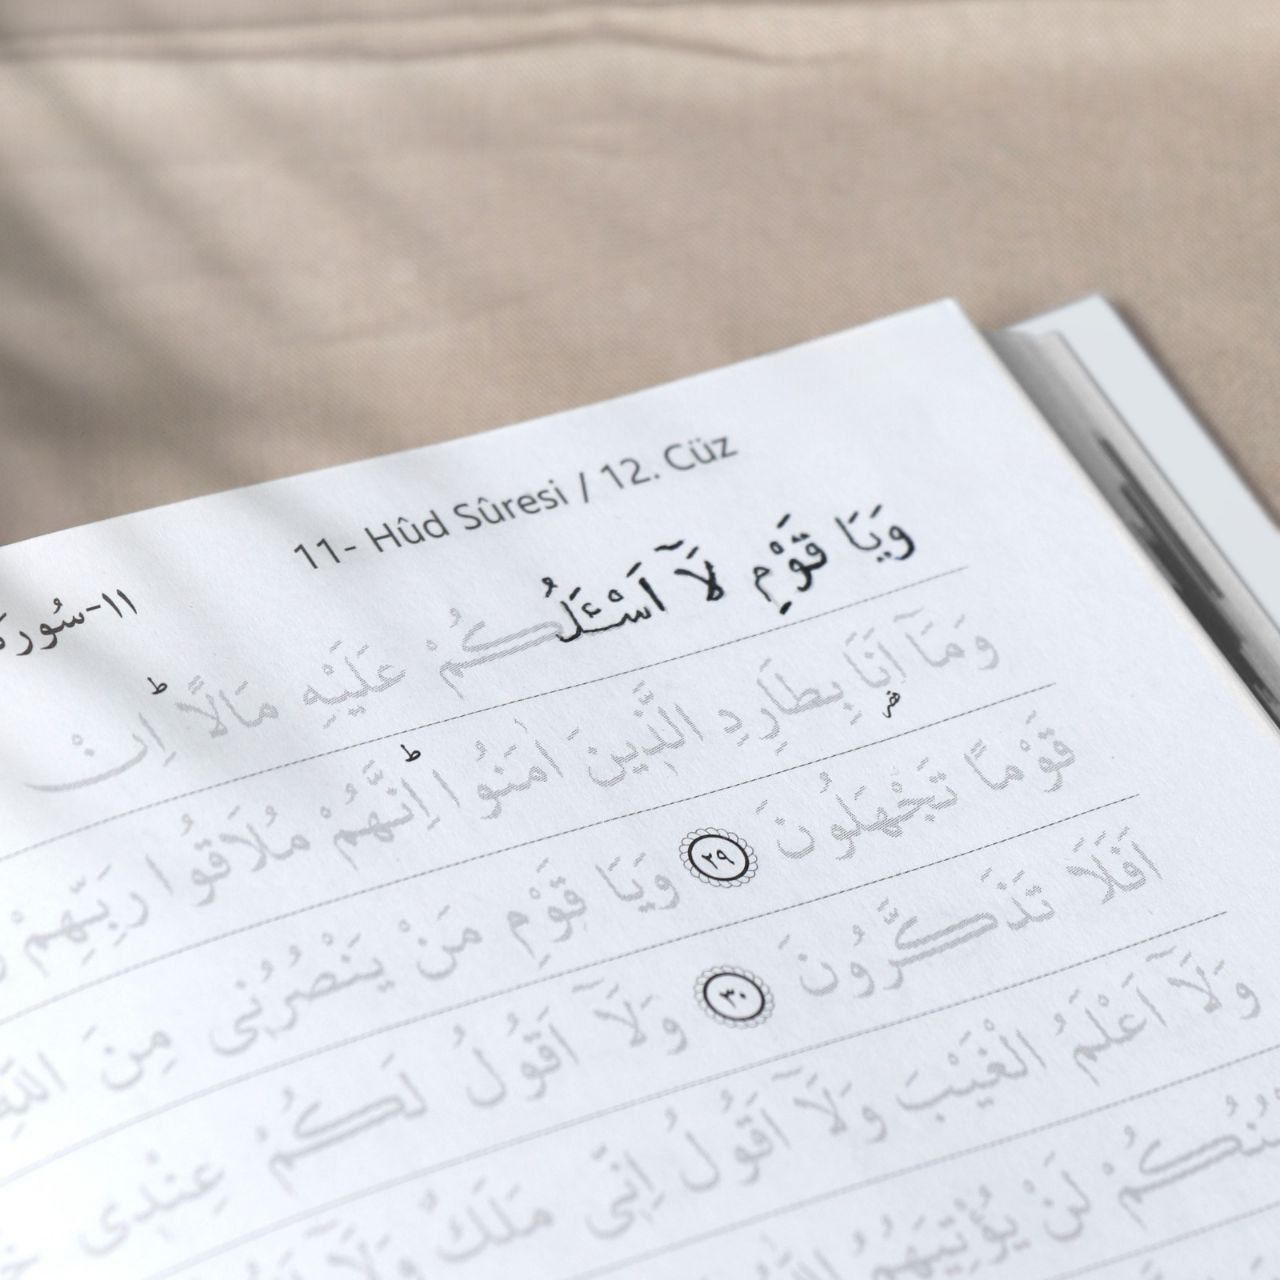 11- Hûd Sûresi / 12. Cüz
١١-سُورَة
وَيَا قَوْمِ لَآ اَسْـَٔلُكُمْ عَلَيْهِ مَالًا ۜ اِنْ
وَمَآ اَنَا۬ بِطَارِدِ الَّذ۪ينَ اٰمَنُوا ۜ اِنَّهُمْ مُلَاقُوا رَبِّهِمْ
قَوْمًا تَجْهَلُونَ ٢٩ وَيَا قَوْمِ مَنْ يَنْصُرُن۪ى مِنَ اللّٰهِ
اَفَلَا تَذَكَّرُونَ ٣٠ وَلَآ اَقُولُ لَكُمْ عِنْد۪ى
وَلَآ اَعْلَمُ الْغَيْبَ وَلَآ اَقُولُ اِنّ۪ى مَلَكٌ وَلَآ
لَنْ يُؤْتِيَهُمُ